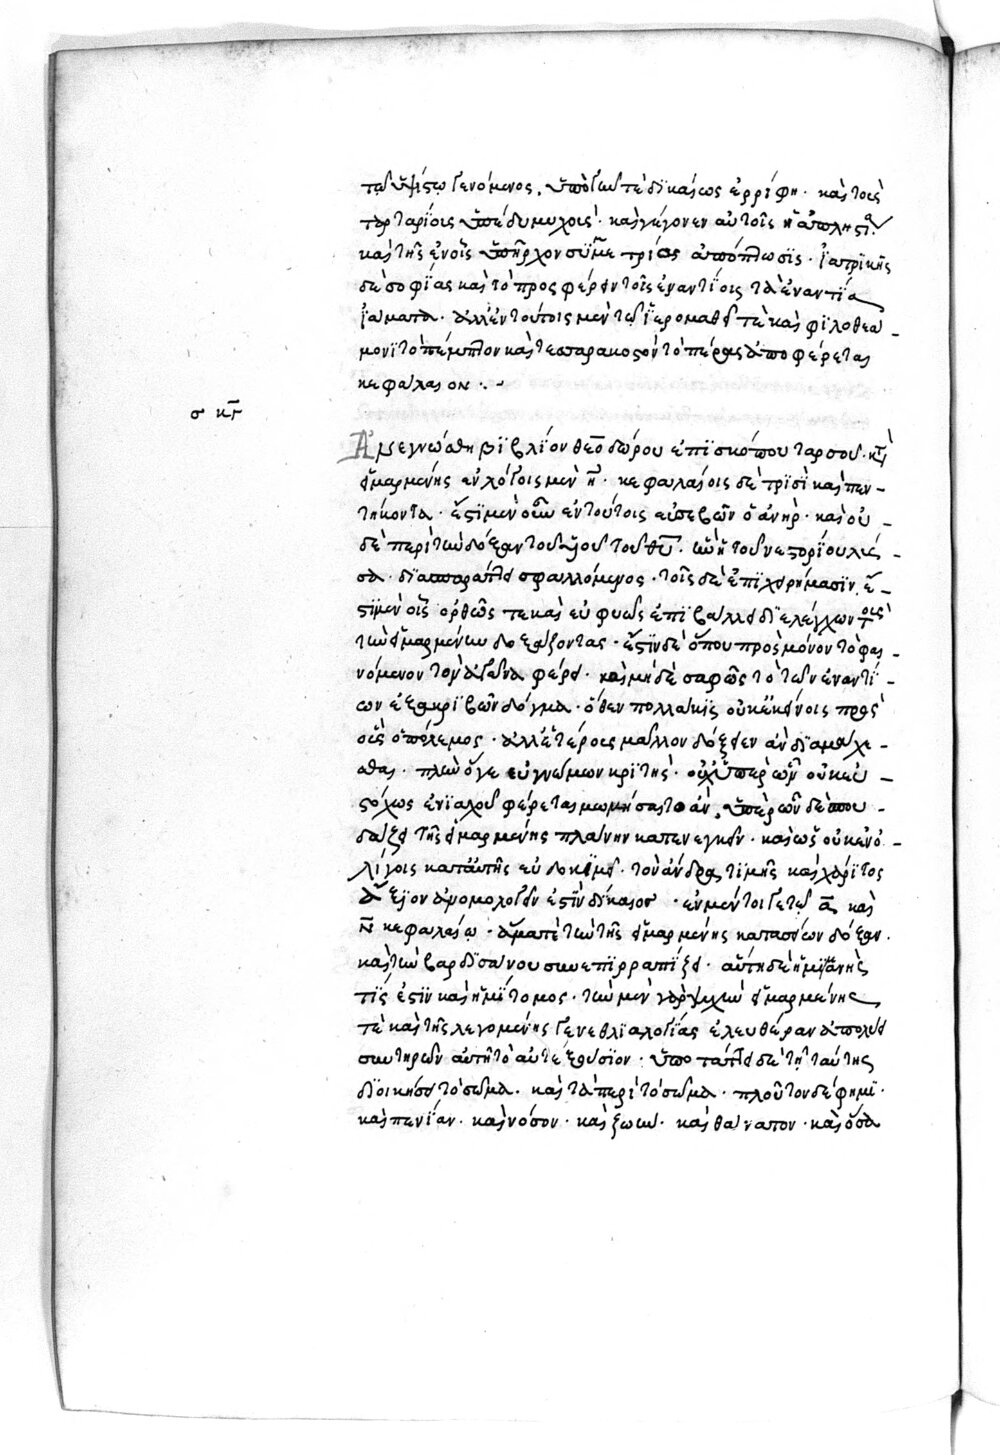 τῷ ὑψίστῳ γενόμενος. ὑπὸ γῆν τε δικαίως ἐρρίφη· καὶ τοῖς
ταρταρίοις ὑπέδυ μυχοῖς· καὶ γέγονεν αὐτοῖς ἡ ἀπληστία
καὶ τῆς ἐν οἷς ὑπῆρχον συμμετρίας ἀπόπτωσις· ἰατρικῆς
δὲ σοφίας καὶ τὸ προσφέρειν τοῖς ἐναντίοις τὰ ἐναντία
ἰάματα· ἀλλ' ἐν τούτοις μὲν τῷ ἱερομαθεῖ τε καὶ φιλοθεά-
μονι τὸ πέμπτον καὶ τεσσαρακοστὸν τὸ πέρας ἀποφέρεται
κεφάλαιον ·.-
σκγ
Ἀνεγνώσθη βιβλίον θεοδώρου ἐπισκόπου ταρσοῦ· κατὰ
εἱμαρμένης ἐν λόγοις μὲν η· κεφαλαίοις δὲ τρισὶ καὶ πεν-
τήκοντα· ἔστι μὲν οὖν ἐν τούτοις εὐσεβῶν ὁ ἀνήρ· καὶ οὐ-
δὲ περὶ τὴν δόξαν τοῦ υἱοῦ τοῦ θυ· ὡς ἡ τοῦ νεστορίου λύσ-
σα· διαπαραπαίει σφαλλόμενος· τοῖς δὲ ἐπιχειρήμασιν, ἔ-
στι μὲν οἷς ὀρθῶς τε καὶ εὐφυῶς ἐπιβάλλει διελέγχων τοὺς
τὴν εἱμαρμένην δοξάζοντας· ἔστιν δὲ ὅπου πρὸς μόνον τὸ φαι-
νόμενον τὸν ἀγῶνα φέρει· καὶ μηδὲ σαφῶς τὸ τῶν ἐναντί-
ων ἐξακριβῶν δόγμα· ὅθεν πολλάκις οὐκ ἐκείνοις πρὸς
οὓς ὁ πόλεμος· ἀλλ' ἑτέροις μᾶλλον δόξειεν ἂν διαμάχε-
σθαι· πλὴν ὅ γε εὐγνώμων κριτής· οὐχ ὑπὲρ ὧν οὐκ εὐ-
στόχως ἐνιαχοῦ φέρεται μωμήσαιτο ἄν, ὑπὲρ ὧν δέ που
δείξει τῆς εἱμαρμένης πλάνην κατενεγκεῖν· καὶ ὡς οὐκ ἐν ὀ-
λίγοις κατ' αὐτῆς εὐδοκιμεῖ· τὸν ἄνδρα τιμῆς καὶ χάριτος
ἄξιον ἀνομολογεῖν ἐστὶν δίκαιος· ἐν μέντοι γε τῷ α καὶ
ν κεφαλαίῳ· ἅμα τε τὴν τῆς εἱμαρμένης κατασείων δόξαν·
καὶ τὴν βαρδισάνου συνεπιρραπίζει· αὕτη δὲ ἡμιμανής
τίς ἐστιν καὶ ἡμίτομος· τὴν μὲν γὰρ ψυχὴν εἱμαρμένης
τε καὶ τῆς λεγομένης γενεθλιαλογίας ἐλευθέραν ἀπολύει
συντηρῶν αὐτῇ τὸ αὐτεξούσιον· ὑποτάττει δὲ τῇ ταύτης
διοικήσει τὸ σῶμα· καὶ τὰ περὶ τὸ σῶμα· πλοῦτον δέ φημι·
καὶ πενίαν· καὶ νόσον· καὶ ζωὴν· καὶ θάνατον· καὶ ὅσα